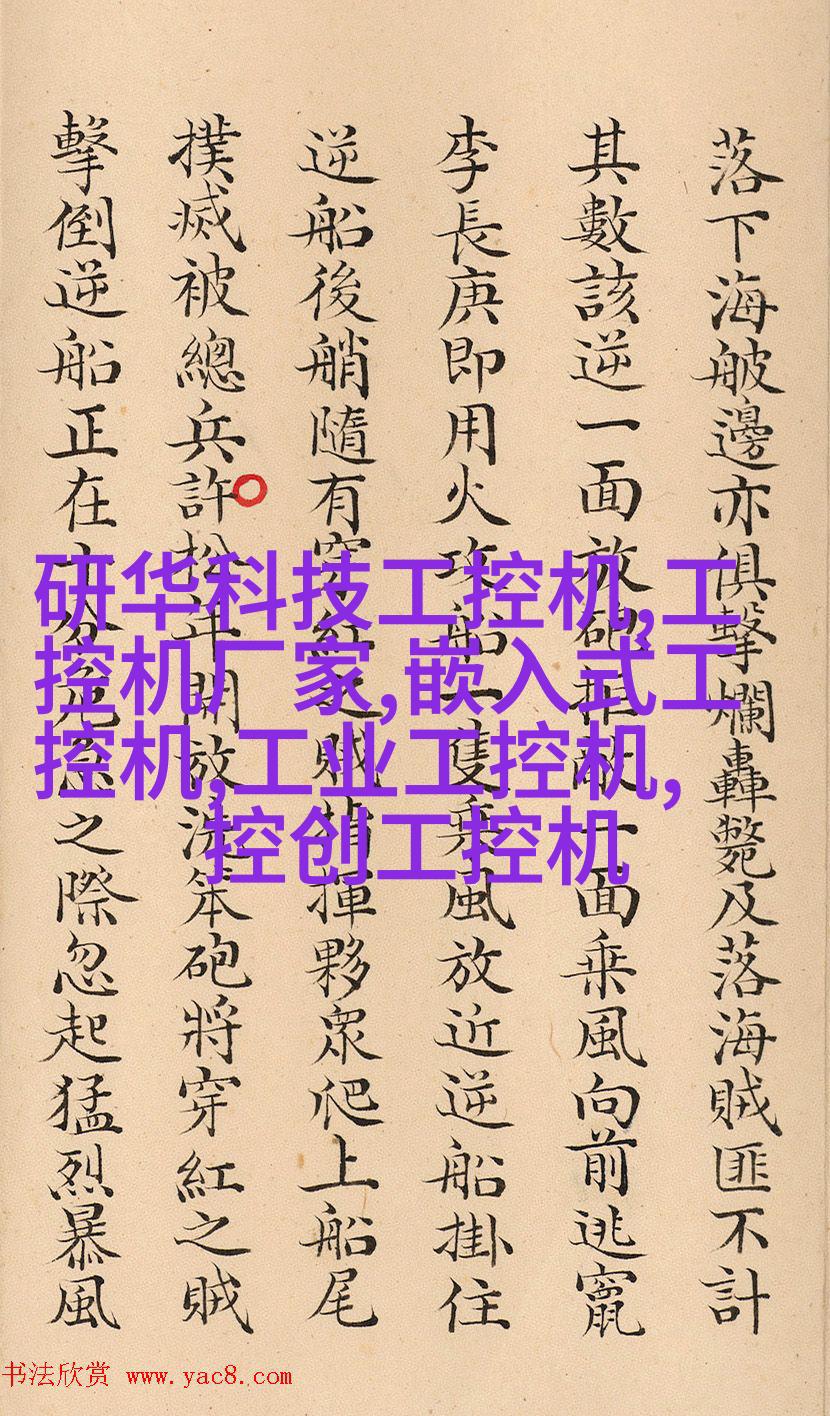 落下海舨邊亦俱擊爛轟斃及落海賊匪不計
其數該逆一面放砲拒敵一面乗風向前逃竄
李長庚即用火攻船一隻乗風放近逆船掛住
逆船後艄隨有穿紅之賊指揮夥眾爬上船尾
撲滅被總兵許松年開放洗笨砲將穿紅之賊
擊倒逆船正在十分危急之際忽起猛烈暴風
研华科技工控机,工
控机厂家,嵌入式工
控机,工业工控机,
控创工控机
书法欣赏 www.yac8.com